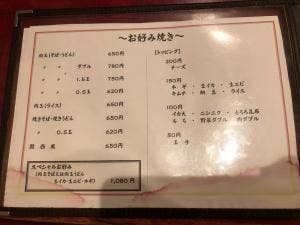 〜お好み焼き〜
肉玉(そば・うどん) 650円
〃 〃 ダブル 780円
〃 〃 1.5玉 750円
〃 〃 0.5玉 620円
肉玉(ライス) 650円
焼きそば・焼きうどん 650円
〃 0.5玉 620円
関西風 650円
スペシャルお好み
(肉玉そば又は肉玉うどん
生イカ・生エビ・ネギ) 1,080円
【トッピング】
200円
チーズ
150円
ネギ ・ 生イカ ・ 生エビ
キムチ ・ 納豆 ・ ライス
100円
イカ天 ・ ニンニク ・ とろろ昆布
もち ・ 野菜ダブル ・ 肉ダブル
50円
玉子